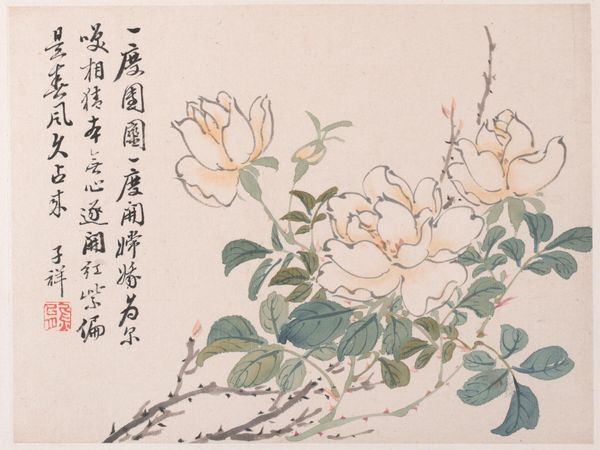 一度團圞一度開嫦娥為爾
咲相猜本无心逐開紅紫偏
是春風久占來
子祥